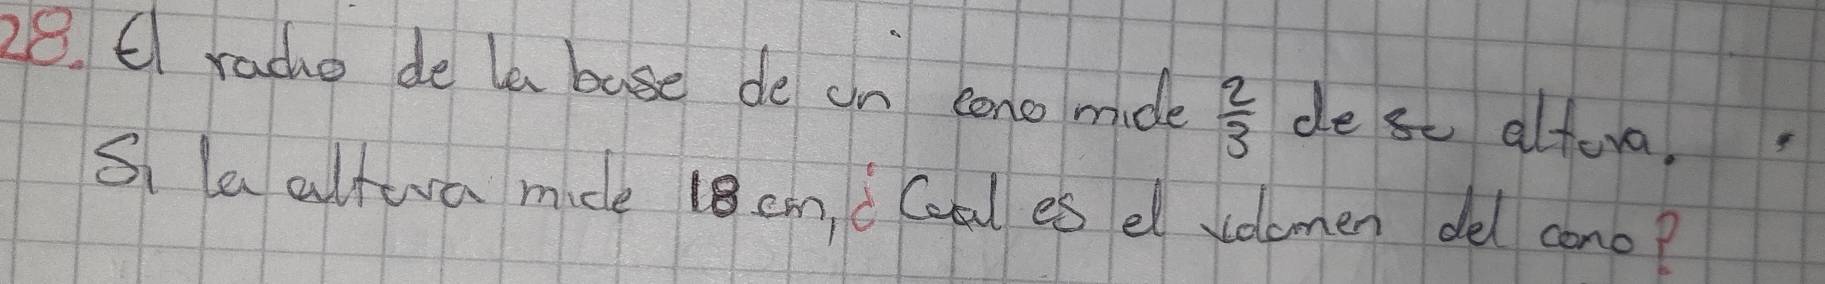 28. El radio de la base de un cono mide 2/3 de su altura.
Si la altura mide 18 cm, ¿Cual es el volumen del cono?